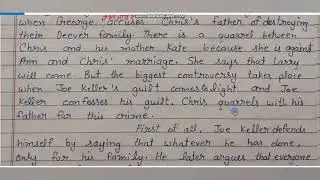 when George accuses Chris's father of destroying
their Deever family. There is a quarrel between
Chris and his mother Kate because she is against
Ann and Chris' marriage. She says that Larry
will come. But the biggest controversy takes place
when Joe Keller's guilt comes to light and Joe
Keller confesses his guilt. Chris quarrels with his
father for this crime.
First of all, Joe Keller defends
himself by saying that whatever he has done,
only for his family. He later argues that everyone